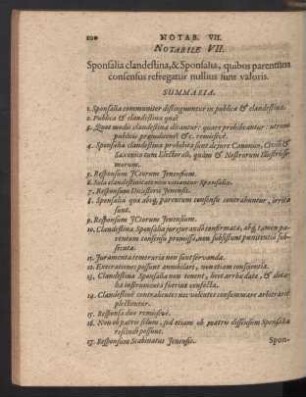 220 NOTAB. VII.
NOTABILE VII.
Sponsalia clandestina, & Sponsalia, quibus parentum
consensus refragatur nullius sunt valoris.
SUMMARIA.
1. Sponsalia communiter distinguuntur in publica & clandestina.
2. Publica & clandestina quæ
3. Quot modis clandestina dicantur: quare prohibeantur: utrum
publicis præjudicent &c. remissivè.
4. Sponsalia clandestina prohibita sunt de jure Canonico, Civili &
Saxonico tum Electorali, quàm & Nostrorum Illustrissi-
morum.
5. Responsum JCtorum Jenensium.
6. Sola clandestinitate non vitiantur Sponsalia.
7. Responsum Dicasterii Jenensis.
8. Sponsalia quæ absq; parentum consensu contrahuntur, irrita
sunt.
9. Responsum JCtorum Jenensium.
10. Clandestina Sponsalia jurejurando confirmata, absq; tamen pa-
rentum consensu promissa, non subsistunt
11. Juramenta temeraria non sunt servanda.
12. Execrationes possunt annullari, non etiam consuetudo.
13. Clandestina Sponsalia non tenent, licet arrha data, &
instrumenta fuerint confecta.
14. Clandestinè contrahentes nec volentes consummare arbitrariè
plectuntur.
15. Responsa duo remissivè.
16. Non ob patris solum, sed etiam ob matris dissensum Sponsalia
rescindi possunt.
17. Responsum Scabinatus Jenensis.
Spon-